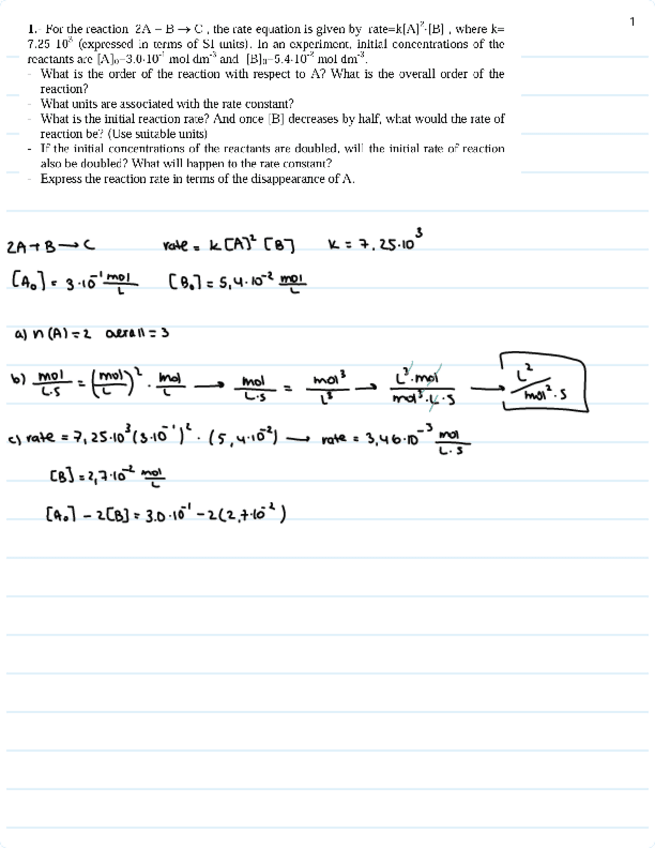 1
1.- For the reaction 2A – B → C , the rate equation is given by rate=k[A]²·[B] , where k=
7.25 10³ (expressed in terms of SI units). In an experiment, initial concentrations of the
reactants are [A]₀–3.0·10⁻¹ mol dm⁻³ and [B]₀–5.4·10⁻² mol dm⁻³.
- What is the order of the reaction with respect to A? What is the overall order of the
reaction?
- What units are associated with the rate constant?
- What is the initial reaction rate? And once [B] decreases by half, what would the rate of
reaction be? (Use suitable units)
- If the initial concentrations of the reactants are doubled, will the initial rate of reaction
also be doubled? What will happen to the rate constant?
- Express the reaction rate in terms of the disappearance of A.
2A + B → C rate = k [A]² [B] k = 7,25·10³
[A₀] = 3·10⁻¹ mol/L [B₀] = 5,4·10⁻² mol/L
a) n(A) = 2 overall = 3
b) mol/L·s = (mol/L)² · mol/L → mol/L·s = mol³/L³ → L³·mol/mol³·L·s → L²/mol²·s
c) rate = 7,25·10³ (3·10⁻¹)² · (5,4·10⁻²) → rate = 3,46·10⁻³ mol/L·s
[B] = 2,7·10⁻² mol/L
[A₀] – 2[B] = 3.0·10⁻¹ – 2(2,7·10⁻²)